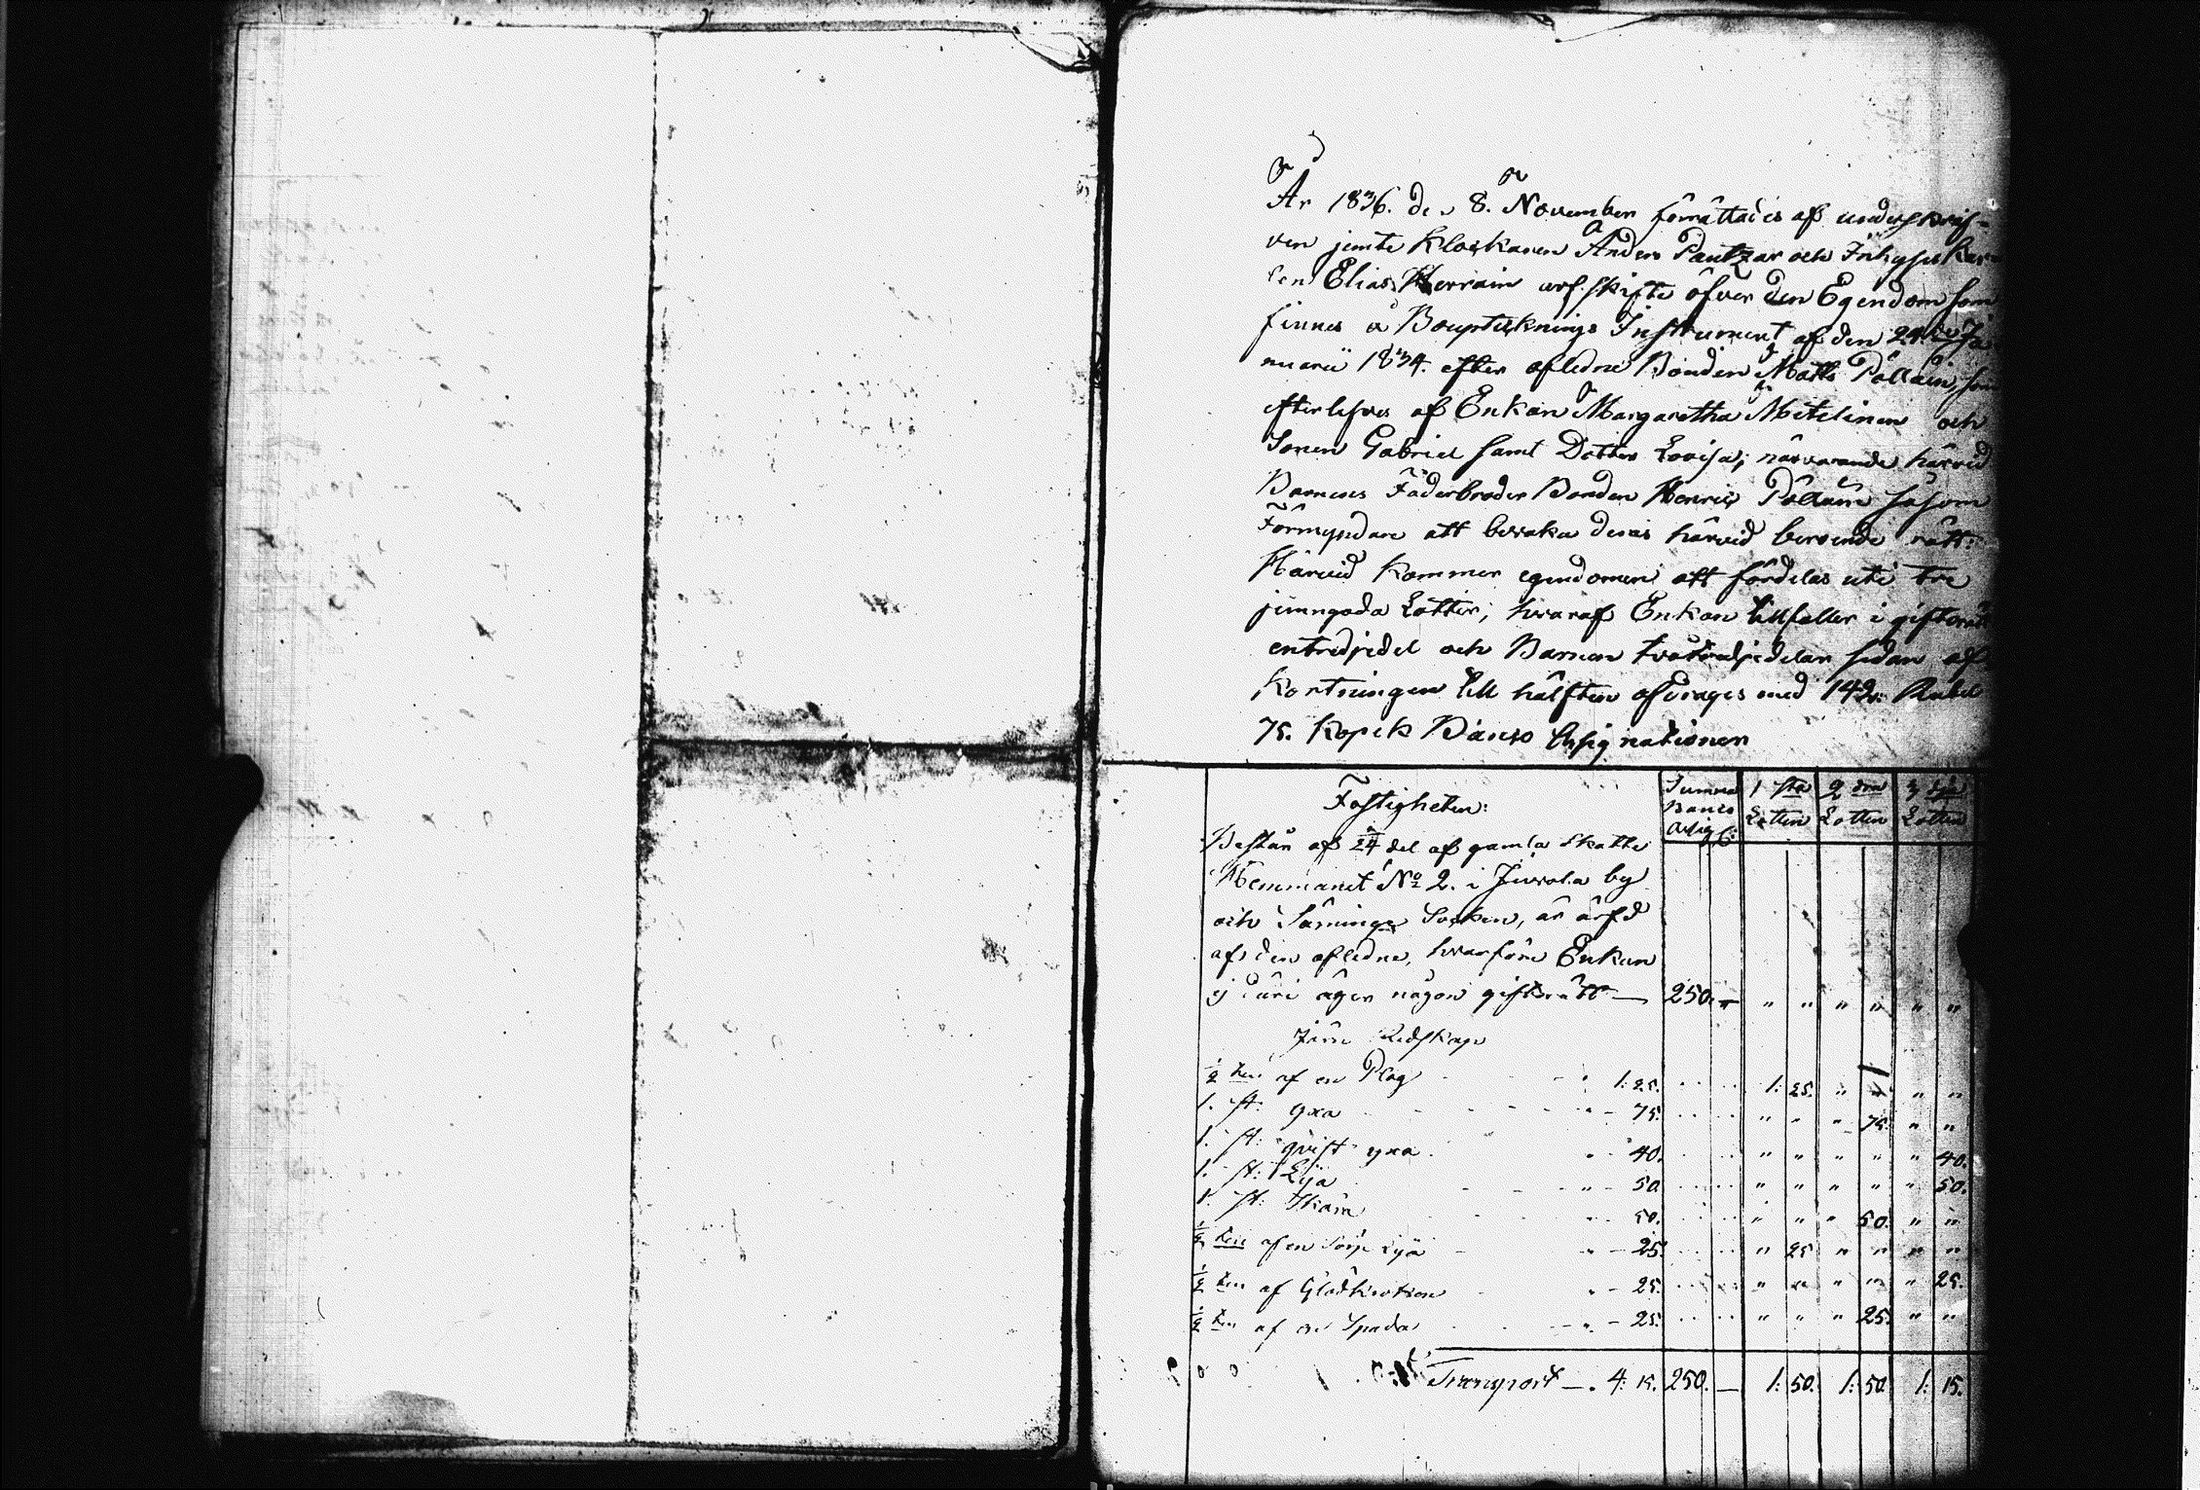 År 1836. den 8. November förrättades af underskrif-
ven jemte Klockaren Anders Pantzar och Inhyses Kar
len Elias Herrain arfskifte öfver den Egendom som
finnes å Bouptecknings Instrument af den 24 Ja
nuarii 1834. efter afledne Bonden Matts Pöllain, som
efterlefves af Enkan Margaretha Mitelinen och
Sonen Gabriel samt Dotter Lovisa; närvarande härvid
Barnens Faderbroder Bonden Henric Pöllain såsom
Förmyndare att bevaka deras härvid beroende rätt:
Härvid kommer egendomen att fördelas uti tre
jemngoda Lotter; hvaraf Enkan tillfaller i giftorätt
entredjedel och Barnen tvåtredjedelar sedan af
kortningen till hälften afdrages med 142. Rubel
75. Kopek Banco Assignationer
Fastigheten: Summa Banco Assig: 1 sta Lotten 2 dra Lotten 3 dje Lotten
Består af 24 del af gamla Skatte
Hemmanet No 2. i Juvola by
och Säminge Socken, är ärfd
af den aflednе, hvarföre Enkan
ej däri äger någon giftorätt — 250. — " " " " " "
Järn Redskap
1/2 ten af en Plog 1: 25. 1: 25. " " " "
1. st: yxa - 75. " " " 75. " "
1. st: qvist yxa " - 40. " " " " " 40.
1. st: Lija " - 50 " " " " " 50.
1. st: Skära - 50. " " " 50. " "
1/2 ten af en Lija " - 25. " 25 " " " "
1/2 ten af - 25. " " " " " 25.
1/2 ten af en Spada - 25. " " " 25. " "
Transport — 4: 15. 250. — 1: 50. 1: 50 1: 15.